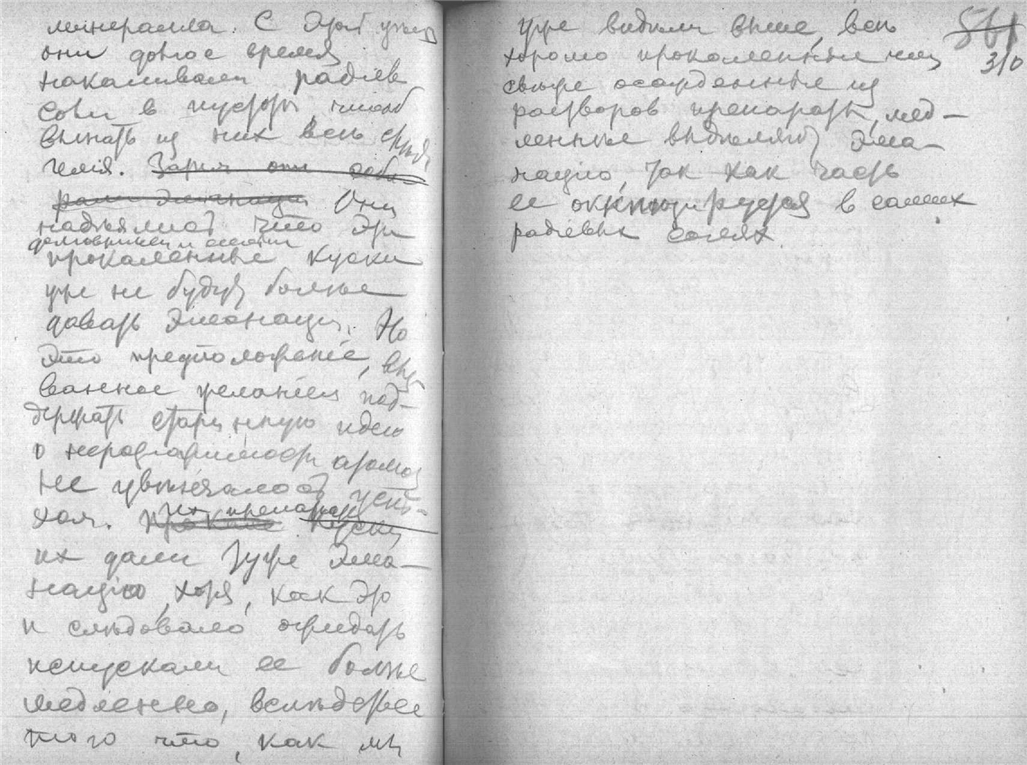 минералла. С этой целью
они долгое время
накаливали радіев
соли в пустоте, чтоб
выгнать из них весь
гелія.
Они
надѣялись что эти
прокаленные куски
уже не будут больше
давать эманаціи. Но
это предположеніе, выз
ванное желаніем под-
держать старинную идею
о неразлагаемости атомов
не увѣнчалось успѣ-
хом. Их препараты
их дали туже эма-
націю, хотя, как это
и слѣдовало ожидать
испускали ее болѣе
медленно, вслѣдствіе
того что, как мы
561
310
уже видѣли выше, всѣ
хорошо прокаленные или
осажденные из
растворов препараты, мед-
леннѣе выдѣляют эма-
націю, так как часть
ее окклюдируется в самих
радіевых солях.